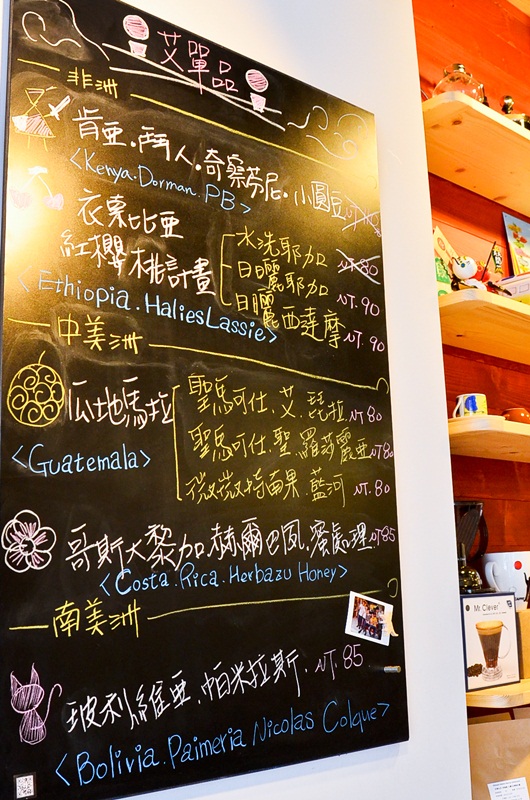 艾單品
非洲
肯亞.鬥人.奇察芬尼.小圓豆
<Kenya.Dorman.PB>
衣索比亞
紅櫻桃計畫
水洗耶加 NT.80
日曬耶加 NT.90
日曬西達摩 NT.90
<Ethiopia.HaliesLassie>
中美洲
瓜地馬拉
<Guatemala>
聖馬可仕.艾.琵拉 NT.80
聖馬可仕.聖.羅莎麗亞 NT.80
微微特南果.藍河 NT.80
哥斯大黎加.赫爾巴夙.蜜處理.NT.85
<Costa.Rica.Herbazu Honey>
南美洲
玻利維亞.帕米拉斯.NT.85
<Bolivia.Paimeria Nicolas Colque>
Mr.Clever